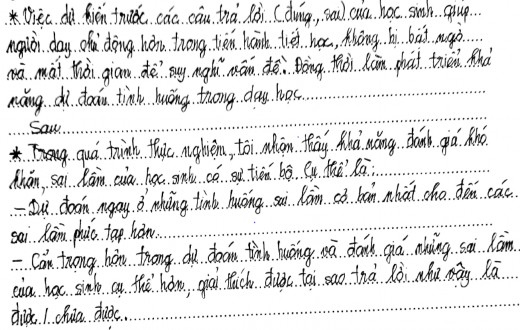 * Việc dự kiến trước các câu trả lời (đúng, sai) của học sinh giúp
người dạy chủ động hơn trong tiến hành tiết học, không bị bất ngờ
và mất thời gian để suy nghĩ vấn đề. Đồng thời làm phát triển khả
năng dự đoán tình huống trong dạy học
Sau
* Trong quá trình thực nghiệm, tôi nhận thấy khả năng đánh giá khó
khăn, sai lầm của học sinh có sự tiến bộ. Cụ thể là:
- Dự đoán ngay ở những tình huống sai lầm cơ bản nhất cho đến các
sai lầm phức tạp hơn
- Cẩn trọng hơn trong dự đoán tình huống và đánh giá những sai lầm
của học sinh cụ thể hơn, giải thích được tại sao trả lời như vậy là
được / chưa được.